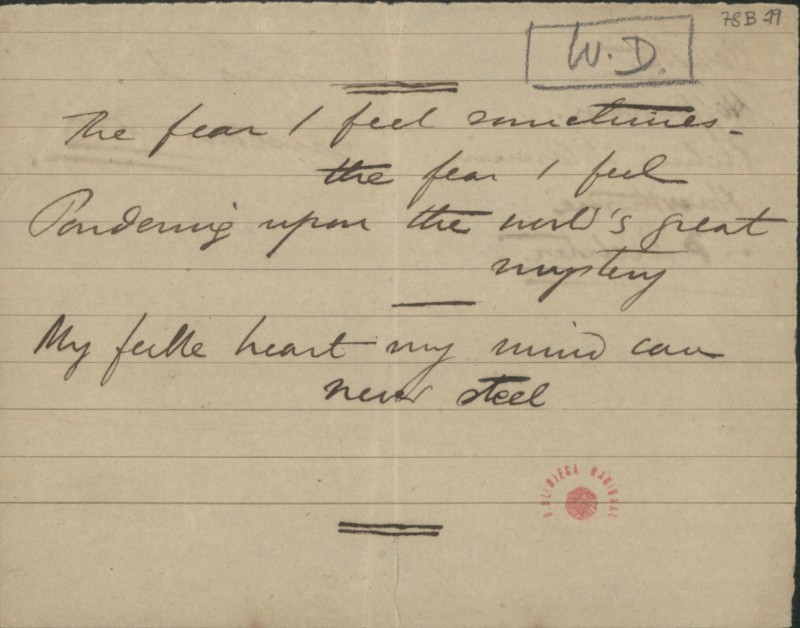 78B-79
W. D.
The fear I feel sometimes –
the fear I feel
Pondering upon the world's great
mystery
My feeble heart my mind can
never steel
BIBLIOTECA NACIONAL